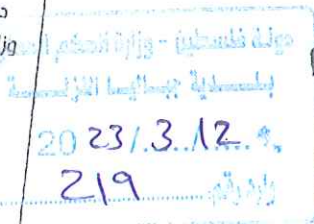 وز
دولة فلسطين - وزارة الحكم
بلدية جباليا النزلة
2023/.3../12....م
وارد رقم 219